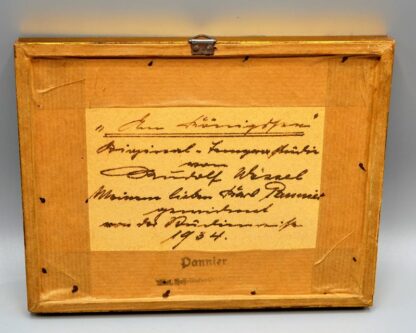 "Am Königssee"
Original-Temperastudie
von
Rudolf Wessel
Meinem lieben Karl Pannier
gewidmet
von der Studienreise
1934.
Pannier